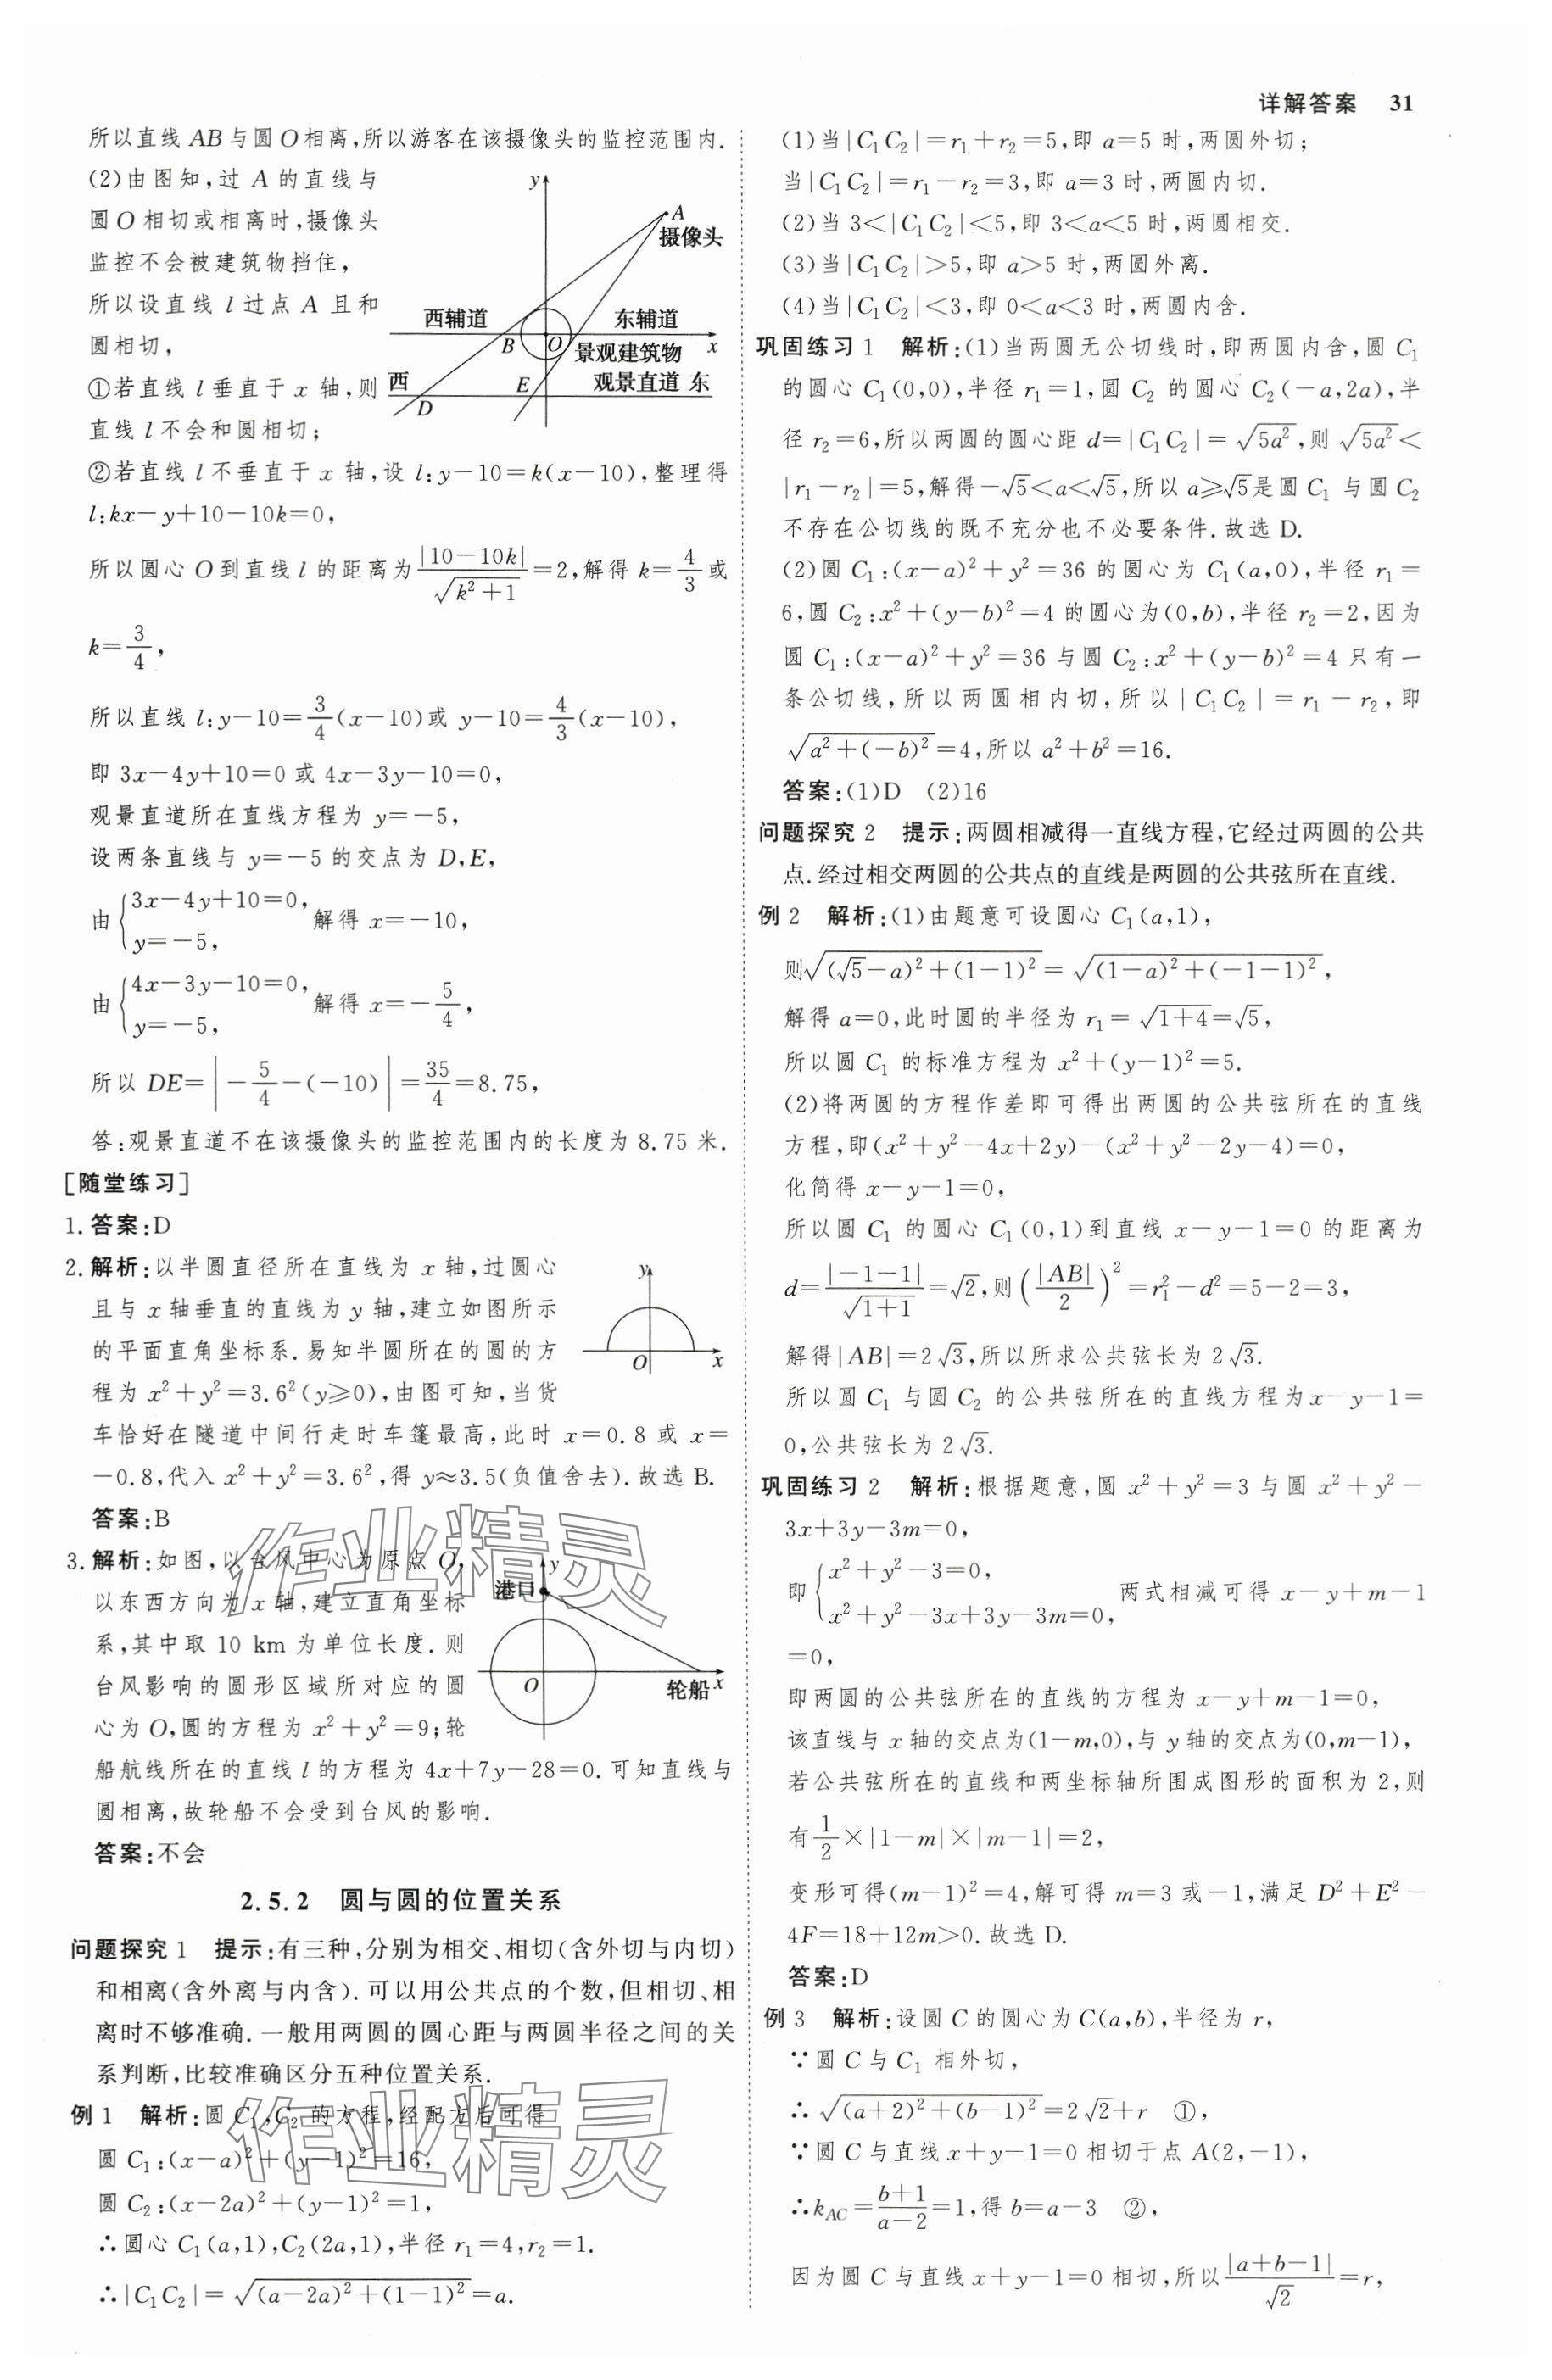 详解答案 31
所以直线 AB 与圆 O 相离,所以游客在该摄像头的监控范围内.
(2)由图知,过 A 的直线与
圆 O 相切或相离时,摄像头
监控不会被建筑物挡住,
所以设直线 l 过点 A 且和
圆相切,
①若直线 l 垂直于 x 轴,则
直线 l 不会和圆相切;
y
A
摄像头
西辅道 东辅道
B O x
景观建筑物
西 E 观景直道 东
D
②若直线 l 不垂直于 x 轴,设 l:y-10=k(x-10),整理得
l:kx-y+10-10k=0,
所以圆心 O 到直线 l 的距离为 |10-10k|/√(k²+1)=2,解得 k=4/3 或
k=3/4,
所以直线 l:y-10=3/4(x-10)或 y-10=4/3(x-10),
即 3x-4y+10=0 或 4x-3y-10=0,
观景直道所在直线方程为 y=-5,
设两条直线与 y=-5 的交点为 D,E,
由{3x-4y+10=0, y=-5, 解得 x=-10,
由{4x-3y-10=0, y=-5, 解得 x=-5/4,
所以 DE=|-5/4-(-10)|=35/4=8.75,
答:观景直道不在该摄像头的监控范围内的长度为 8.75 米.
[随堂练习]
1.答案:D
2.解析:以半圆直径所在直线为 x 轴,过圆心
且与 x 轴垂直的直线为 y 轴,建立如图所示
的平面直角坐标系.易知半圆所在的圆的方
程为 x²+y²=3.6²(y≥0),由图可知,当货
y
O x
车恰好在隧道中间行走时车篷最高,此时 x=0.8 或 x=
-0.8,代入 x²+y²=3.6²,得 y≈3.5(负值舍去).故选 B.
答案:B
3.解析:如图,以台风中心为原点 O,
以东西方向为 x 轴,建立直角坐标
系,其中取 10 km 为单位长度.则
台风影响的圆形区域所对应的圆
心为 O,圆的方程为 x²+y²=9;轮
y
港口
O
轮船 x
船航线所在的直线 l 的方程为 4x+7y-28=0.可知直线与
圆相离,故轮船不会受到台风的影响.
答案:不会
2.5.2 圆与圆的位置关系
问题探究 1 提示:有三种,分别为相交、相切(含外切与内切)
和相离(含外离与内含).可以用公共点的个数,但相切、相
离时不够准确.一般用两圆的圆心距与两圆半径之间的关
系判断,比较准确区分五种位置关系.
例 1 解析:圆 C₁,C₂ 的方程,经配方后可得
圆 C₁:(x-a)²+(y-1)²=16,
圆 C₂:(x-2a)²+(y-1)²=1,
∴圆心 C₁(a,1),C₂(2a,1),半径 r₁=4,r₂=1.
∴|C₁C₂|=√((a-2a)²+(1-1)²)=a.
(1)当|C₁C₂|=r₁+r₂=5,即 a=5 时,两圆外切;
当|C₁C₂|=r₁-r₂=3,即 a=3 时,两圆内切.
(2)当 3<|C₁C₂|<5,即 3<a<5 时,两圆相交.
(3)当|C₁C₂|>5,即 a>5 时,两圆外离.
(4)当|C₁C₂|<3,即 0<a<3 时,两圆内含.
巩固练习 1 解析:(1)当两圆无公切线时,即两圆内含,圆 C₁
的圆心 C₁(0,0),半径 r₁=1,圆 C₂ 的圆心 C₂(-a,2a),半
径 r₂=6,所以两圆的圆心距 d=|C₁C₂|=√(5a²),则 √(5a²)<
|r₁-r₂|=5,解得-√5<a<√5,所以 a≥√5是圆 C₁ 与圆 C₂
不存在公切线的既不充分也不必要条件.故选 D.
(2)圆 C₁:(x-a)²+y²=36 的圆心为 C₁(a,0),半径 r₁=
6,圆 C₂:x²+(y-b)²=4 的圆心为(0,b),半径 r₂=2,因为
圆 C₁:(x-a)²+y²=36 与圆 C₂:x²+(y-b)²=4 只有一
条公切线,所以两圆相内切,所以|C₁C₂|=r₁-r₂,即
√(a²+(-b)²)=4,所以 a²+b²=16.
答案:(1)D (2)16
问题探究 2 提示:两圆相减得一直线方程,它经过两圆的公共
点.经过相交两圆的公共点的直线是两圆的公共弦所在直线.
例 2 解析:(1)由题意可设圆心 C₁(a,1),
则√((√5-a)²+(1-1)²)=√((1-a)²+(-1-1)²),
解得 a=0,此时圆的半径为 r₁=√(1+4)=√5,
所以圆 C₁ 的标准方程为 x²+(y-1)²=5.
(2)将两圆的方程作差即可得出两圆的公共弦所在的直线
方程,即(x²+y²-4x+2y)-(x²+y²-2y-4)=0,
化简得 x-y-1=0,
所以圆 C₁ 的圆心 C₁(0,1)到直线 x-y-1=0 的距离为
d=|-1-1|/√(1+1)=√2,则(|AB|/2)²=r₁²-d²=5-2=3,
解得|AB|=2√3,所以所求公共弦长为 2√3.
所以圆 C₁ 与圆 C₂ 的公共弦所在的直线方程为x-y-1=
0,公共弦长为 2√3.
巩固练习 2 解析:根据题意,圆 x²+y²=3 与圆 x²+y²-
3x+3y-3m=0,
即{x²+y²-3=0, x²+y²-3x+3y-3m=0, 两式相减可得 x-y+m-1
=0,
即两圆的公共弦所在的直线的方程为 x-y+m-1=0,
该直线与 x 轴的交点为(1-m,0),与 y 轴的交点为(0,m-1),
若公共弦所在的直线和两坐标轴所围成图形的面积为 2,则
有 1/2×|1-m|×|m-1|=2,
变形可得(m-1)²=4,解可得 m=3 或-1,满足 D²+E²-
4F=18+12m>0.故选 D.
答案:D
例 3 解析:设圆 C 的圆心为 C(a,b),半径为 r,
∵圆 C 与 C₁ 相外切,
∴√((a+2)²+(b-1)²)=2√2+r ①,
∵圆 C 与直线 x+y-1=0 相切于点 A(2,-1),
∴k_AC=(b+1)/(a-2)=1,得 b=a-3 ②,
因为圆 C 与直线 x+y-1=0 相切,所以|a+b-1|/√2=r,
作业精灵
作业精灵